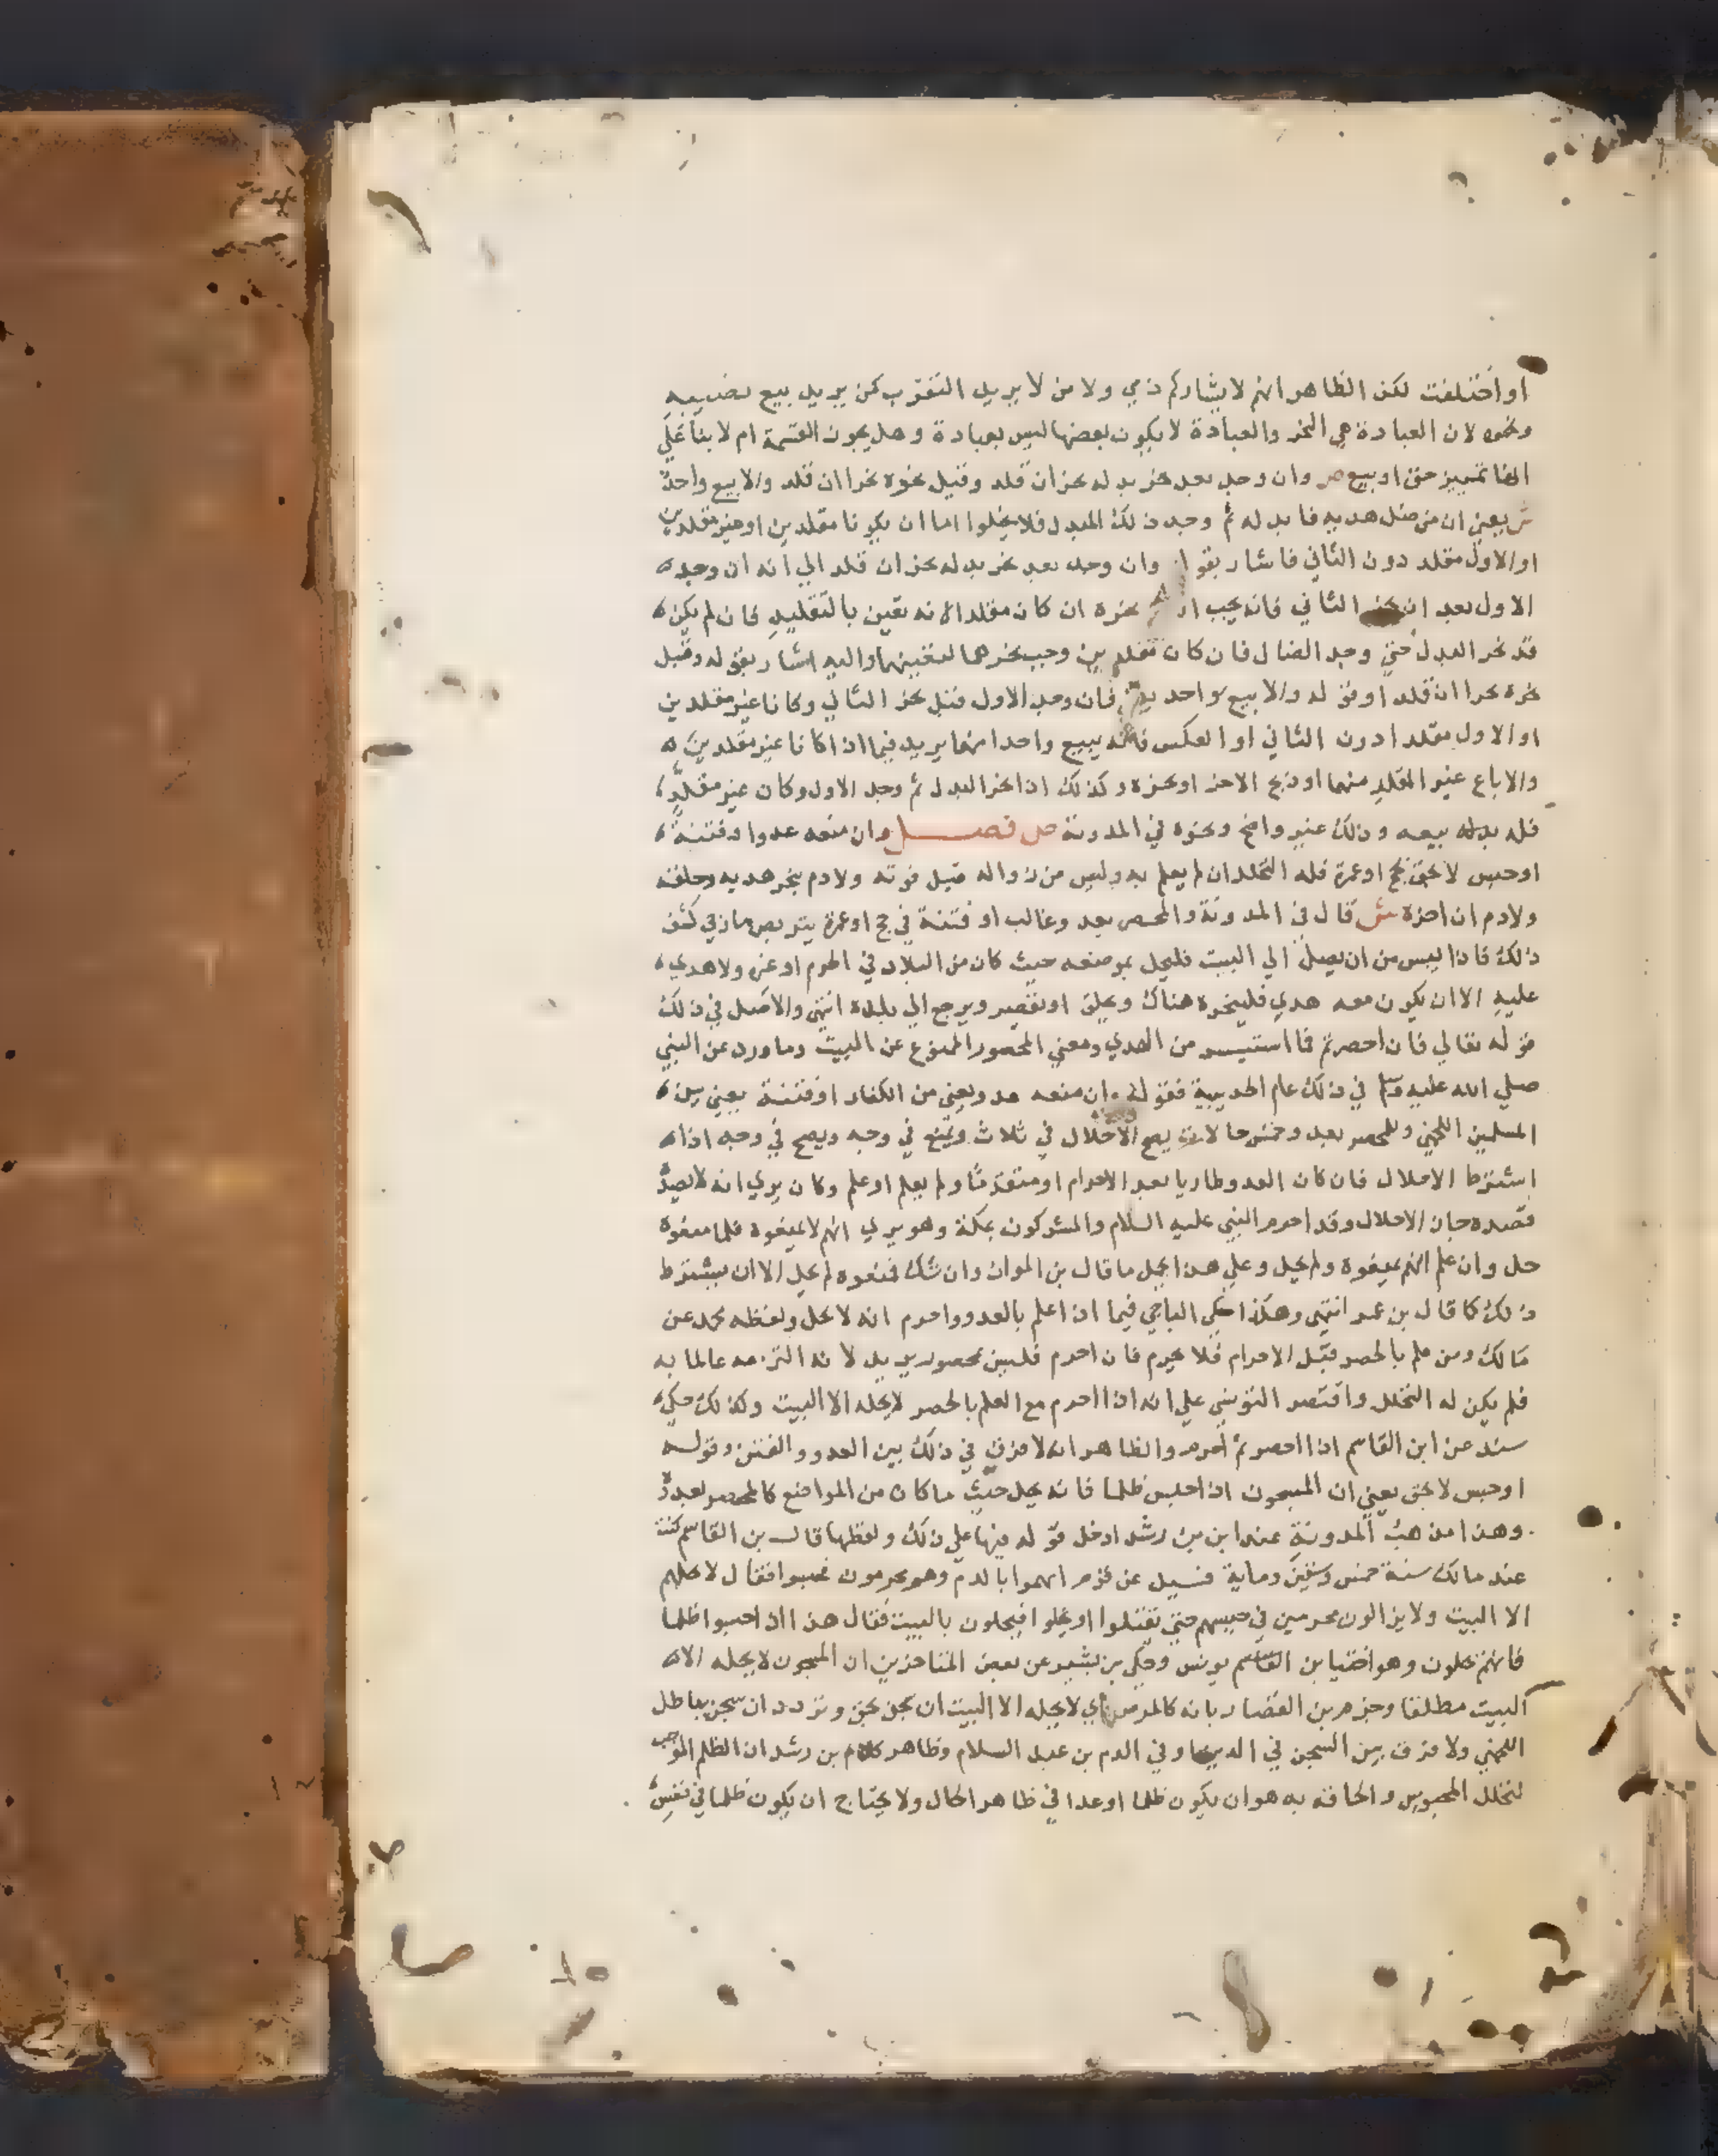 او اختلفت لكن الظاهر انهم لا يشاركهم ذمي ولا من لا يريد التقرب كمن يريد بيع نصيبه
ونحوه لان العبادة هي النحر والعبادة لا يكون بعضها ليس بعبادة وهل يجوز القسمة ام لا بنا على
انها تمييز حق او بيع ص وان وجد بعد نحر بدله نحر ان قلد وقبل نحره نحرا ان قلد والا بيع واحد
ش يعني ان من ضل هديه فابدله ثم وجد ذلك المبدل فلا يخلوا اما ان يكونا مقلدين او غير مقلدين
او الاول مقلد دون الثاني فاشار بقو وان وجد بعد نحر بدله نحر ان قلد الي انه ان وجد
الاول بعد ان نحر الثاني فانه يجب نحره ان كان مقلدا لانه تعين بالتقليد فان لم يكن
قد نحر البدل حتي وجد الضال فان كان مقلدين وجب نحرهما لتعينهما واليه اشار بقوله وقبل
نحره نحرا ان قلد او قوله والا بيع واحد فان وجد الاول قبل نحر الثاني وكانا غير مقلدين
او الاول مقلدا دون الثاني او العكس فانه يبيع واحدا منهما يريد فيما اذا كانا غير مقلدين
والا باع غير المقلد منهما او ذبح الاخر او نحره وكذلك اذا نحر البدل ثم وجد الاول وكان غير مقلد
فله بدله بيعه وذلك غير واضح ونحوه في المدونة ص فصل وان منعه عدو او فتنة
او حبس لا بحق بحج او عمرة فله التحلل ان لم يعلم به وايس من زواله قبل فوته ولا دم بنحر هديه وحلقه
ولا دم ان اخره ش قال في المدونة والمحصر بعد وغالب او فتنة في حج او عمرة يتربص ما رجي كشف
ذلك فاذا ايس من ان يصل الي البيت فليحل بموضعه حيث كان من البلاد في الحرم او غيره ولا هدي
عليه الا ان يكون معه هدي فلينحره هناك ويحلق او يقصر ويرجع الي بلده انتهي والاصل في ذلك
قوله تعالي فان احصرتم فما استيسر من الهدي ومعني المحصور الممنوع عن البيت وما ورد عن النبي
صلي الله عليه وسلم في ذلك عام الحديبية فقوله وان منعه عدو يعني من الكفار او فتنة يعني بين
المسلمين اللخمي وللمحصر بعد وخمس حالات يصح الاحلال في ثلاث ويمنع في وجه ويصح في وجه اذا
اشترط الاحلال فان كان العدو طاريا بعد الاحرام او متقدما ولم يعلم او علم وكان يري انه لا يصد
قصده جاز الاحلال وقد احرم النبي عليه السلام والمشركون بمكة وهو يري انهم لا يمنعوه فلما منعوه
حل وان علم انهم يمنعوه ولم يحل وعلي هذا يحمل ما قال بن المواز وان شك فمنعوه لم يحل الا ان يشترط
ذلك كما قال بن عمر انتهي وهكذا حكي الباجي فيما اذا علم بالعدو واحرم انه لا يحل ولفظه محمد عن
مالك ومن علم بالحصر قبل الاحرام فلا يحرم فان احرم فليس بمحصور يريد لانه التزمه عالما به
فلم يكن له التحلل واقتصر التونسي علي انه اذا احرم مع العلم بالحصر لا يحله الا البيت وكذلك حكي
سند عن ابن القاسم اذا احصر ثم احرم والظاهر انه لا فرق في ذلك بين العدو والفتن وقوله
او حبس لا بحق يعني ان المسجون اذا حبس ظلما فانه يحل حيث ما كان من المواضع كالمحصر بعدو
وهذا مذهب المدونة عند ابن رشد ادخل قوله فيها علي ذلك ولفظها قال بن القاسم كنت
عند مالك سنة خمس وستين وماية فسيل عن قوم اتهموا بالدم وهم محرمون فحبسوا فقال لا يحلهم
الا البيت ولا يزالون محرمين في حبسهم حتي يقتلوا او يخلوا فيحلون بالبيت فقال هذا اذا حبسوا ظلما
فانهم يحلون وهو اختيار بن القاسم يونس وحكي بن بشير عن بعض المتاخرين ان المسجون لا يحله الا
البيت مطلقا وجزم بن القصار بانه كالمرض اي لا يحله الا البيت ان سجن بحق وتردد ان سجن بباطل
اللخمي ولا فرق بين السجن في الدين او في الدم بن عبد السلام وظاهر كلام بن رشد ان الظلم الموجب
لتحلل المحبوس والحاقه به هو ان يكون ظلما او عدا في ظاهر الحال ولا يحتاج ان يكون ظلما في نفس